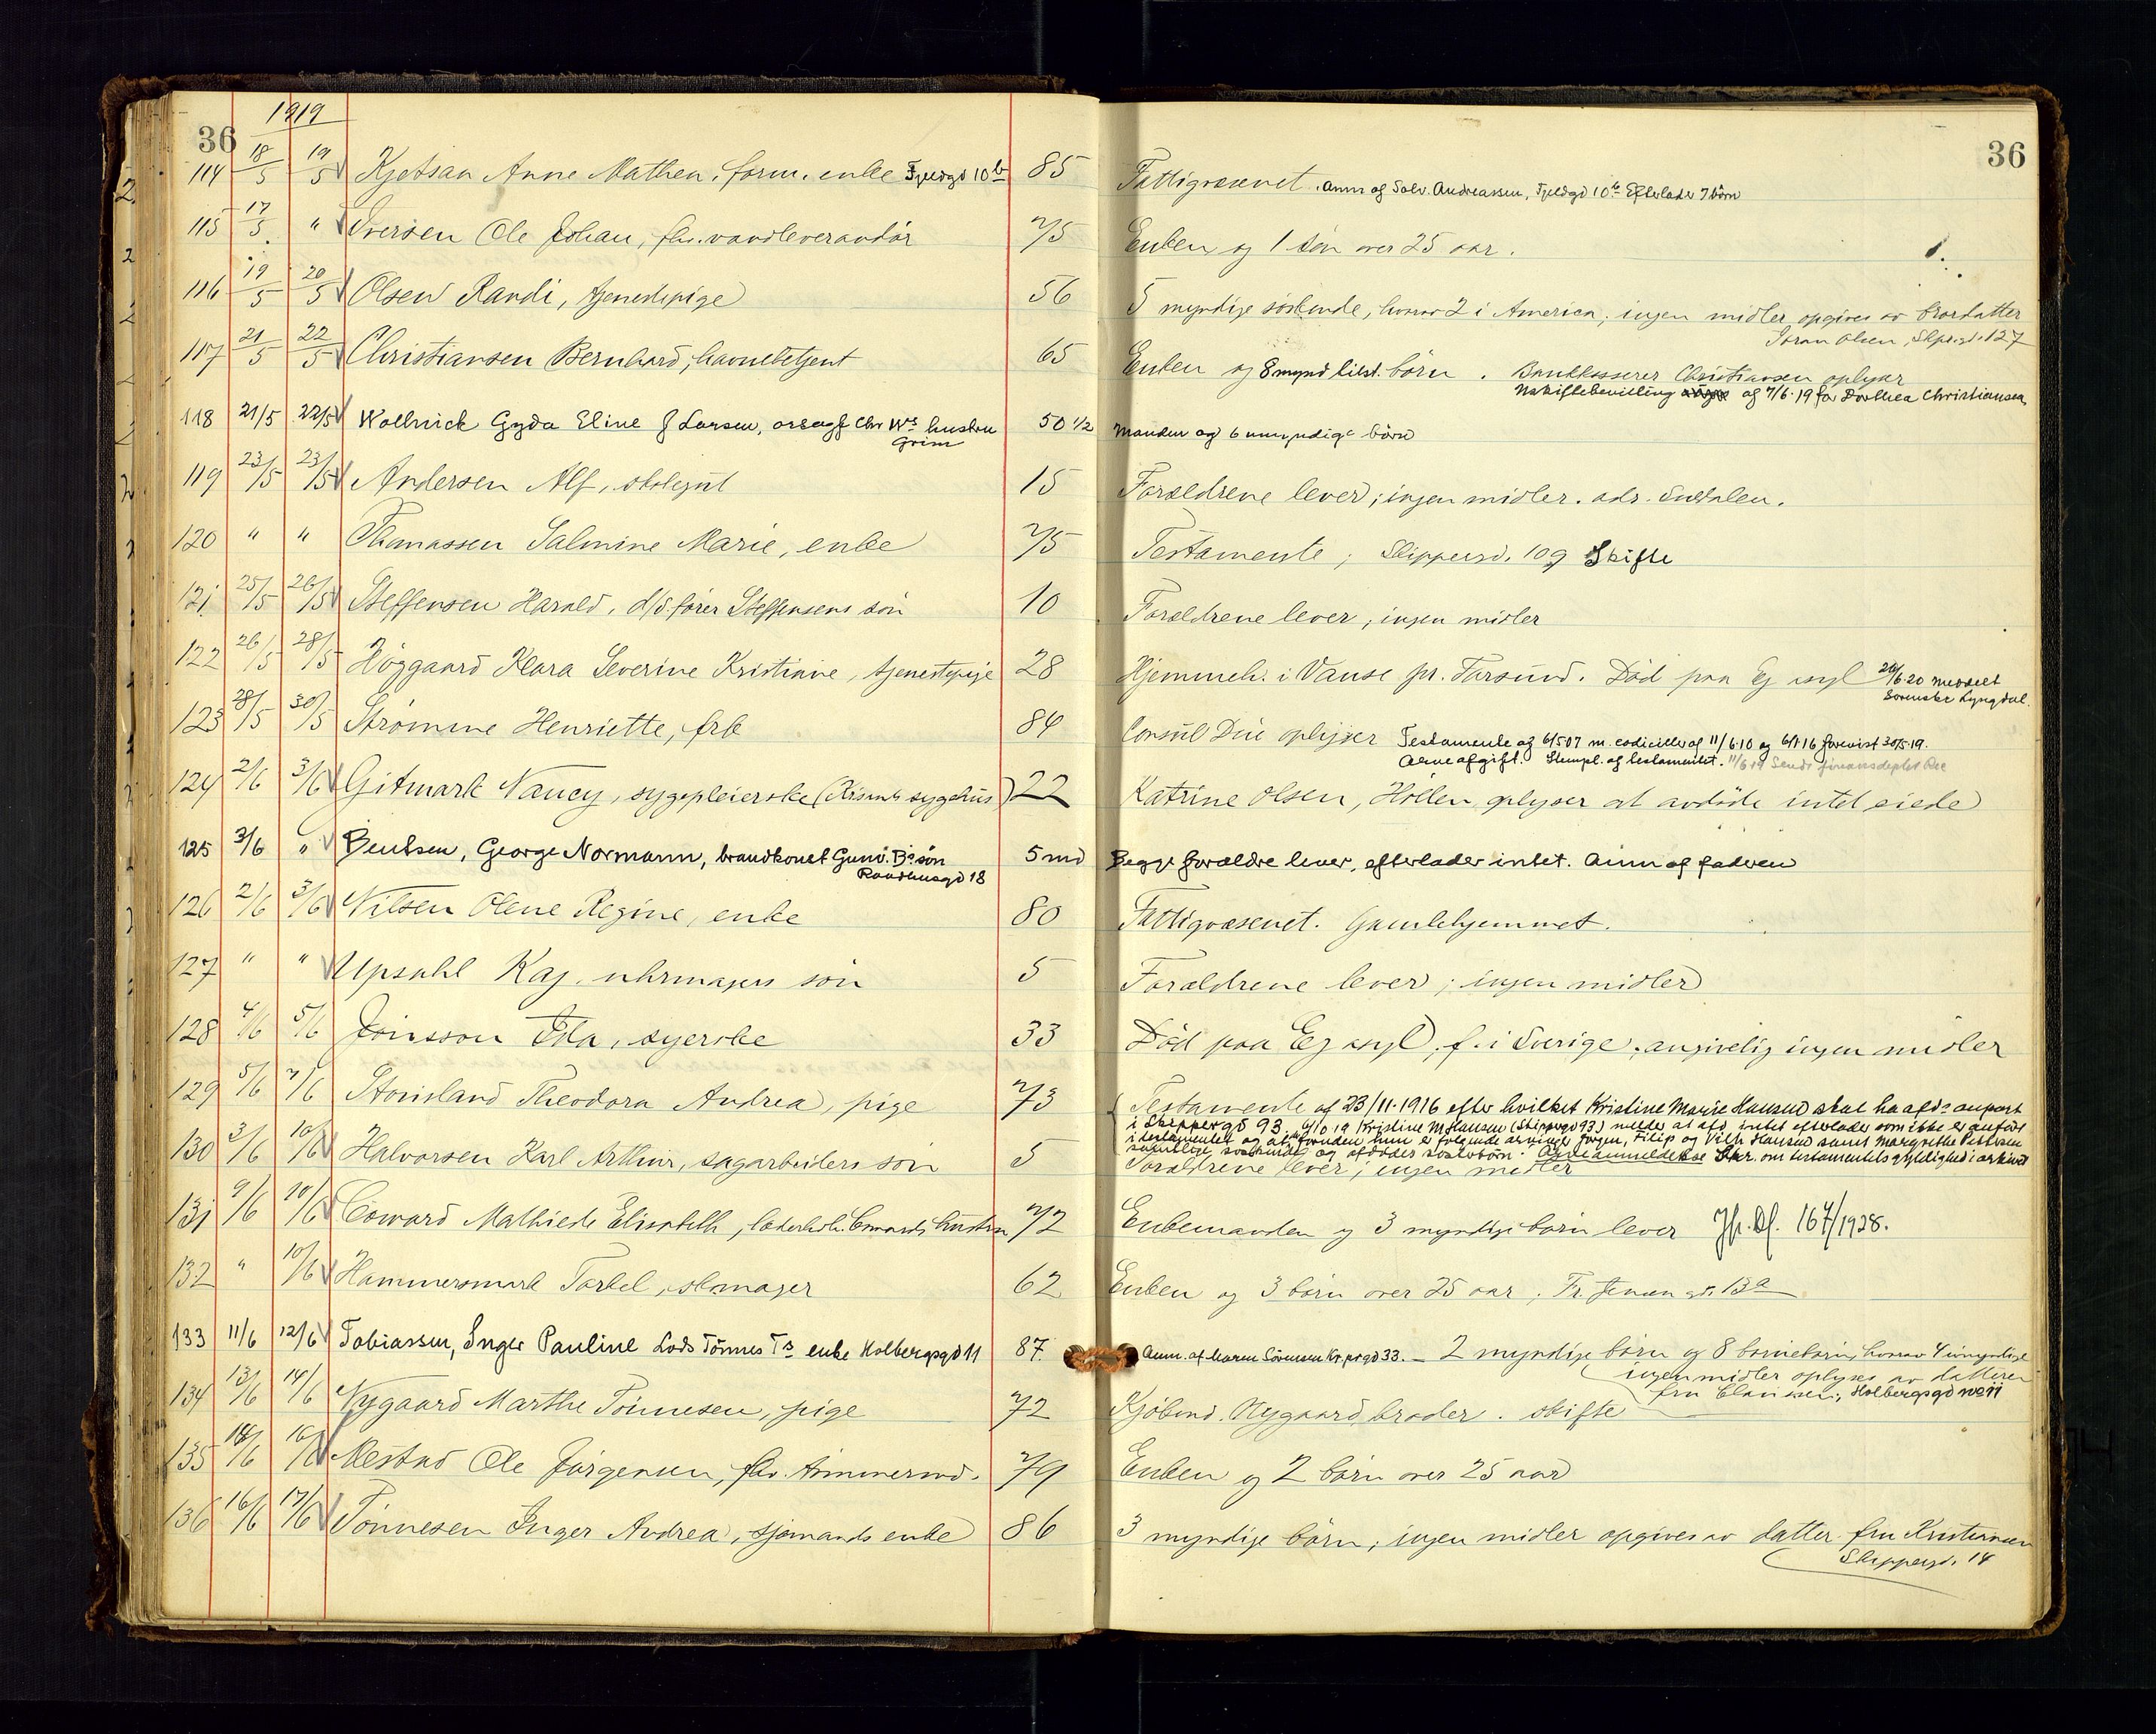 1919
36
36
114 18/5 19/5 Kjetsaa Anne Mathea, form. enke Fjeldgd 10b 85 Fattigvæsenet. Anm af Salv. Andreassen, Fjeldgd 10b Efterlader 7 börn
115 17/5 " Iversen Ole Johan, fhv. vandleverandör 75 Enken og 1 sön over 25 aar.
116 19/5 20/5 Olsen Randi, tjenestepige 56 5 myndige söskende, hvorav 2 i America; ingen midler opgives av brordatter
Olsen, Skipsgd. 127
117 21/5 22/5 Christiansen Bernhard, havnebetjent 65 Enken og 8 mynd lilst. börn. Bankkasserer Christiansen oplyser
Uskiftebevilling af 7/6.19 for Dorthea Christiansen
118 21/5 22/5 Wallnick Gyda Eline f Larsen, Chr Ws hustru 50 1/2 Manden og 6 umyndige börn
Grim
119 23/5 23/5 Andersen Alf, skolegut 15 Forældrene lever; ingen midler. adr. Suldalen.
120 " " Thomassen Salmine Marie, enke 75 Testamente; Skippergd. 109 Skifte
121 25/5 26/5 Steffensen Harald, d/s förer Steffensens sön 10 Forældrene lever; ingen midler
122 26/5 28/5 Höggaard Klara Severine Kristiane, tjenestepige 28 Hjemmeh. i Vanse pr. Farsund. Död paa Eg asyl 26/6.20 meddelt
Sorensk. Lyngdal.
123 28/5 30/5 Strömme Henriette, frk 84 Consul Due oplyser Testamente af 6/5 07 m. codiciller af 11/6.10 og 6/1 16 forevist 30/5.19.
Arveafgift. Stempl. af testamentet. 11/6 19 Sendt finansdeptet
124 2/6 3/6 Gitmark Nancy, sygepleierske (Krisands sygehus) 22 Katrine Olsen, Höllen, oplyser at avdöde intet eiede
125 3/6 " Bentsen, George Normann, brandkonst Gunv. Bs sön 5 md Begge forældre lever, efterlader intet. Anm af faderen
Raadhusgd 18
126 2/6 3/6 Nilsen Olene Regine, enke 80 Fattigvæsenet. Gamlehjemmet.
127 " " Upsahl Kaj, uhrmagers sön 5 Forældrene lever; ingen midler
128 4/6 5/6 Jönsson Ida, syerske 33 Död paa Eg asyl, f. i Sverige, angivelig ingen midler
129 5/6 7/6 Theodora Andrea, pige 73 Testamente af 23/11.1916 efter hvilket Kristine Marie Hansen skal ha afds anpart
i Skippergd 93. 4/10 19 Kristine M Hansen (Skippergd 93) melder at afd intet efterlader som ikke er anfört
i testamentet og at foruden hun er fölgende arvinger Jörgen, Filip og Vilh Hansen samt Margrethe Pedersen
samtlige söskende og afdödes svoverbörn. Arveanmeldelse Skr. om testamentets gyldighed i arkivet
130 3/6 10/6 Halvorsen Karl Arthur, sagarbeiders sön 5 Forældrene lever; ingen midler
131 9/6 10/6 Coward Mathilde Elisabeth, læderhdl. Cowards hustru 72 Enkemanden og 3 myndige börn lever Jfr. Df. 167/1928.
132 " 10/6 Hammersmark Tarkel, skomager 62 Enken og 3 börn over 25 aar; Fr. Jensen gt. 13a
133 11/6 12/6 Tobiassen, Inger Pauline Lods Tönnes Ts enke Holbergsgd 11 87. Anm. af Maren Sörensen Kr.prgd 33. – 2 myndige börn og 8 barnebarn, hvorav 4 umyndige
ingen midler oplyses av datteren
fru Claussen, Holbergsgd no 11
134 13/6 14/6 Nygaard Marthe Tönnesen, pige 72 Kjöbmd. Nygaard broder. skifte
135 16/6 Mestad Ole Jörgensen, fhv. tömmermd. 79 Enken og 2 börn over 25 aar
136 16/6 17/6 Tönnesen Inger Andrea, sjömands enke 86 3 myndige börn; ingen midler opgives av datter fru Kristensen
Skippergd. 14